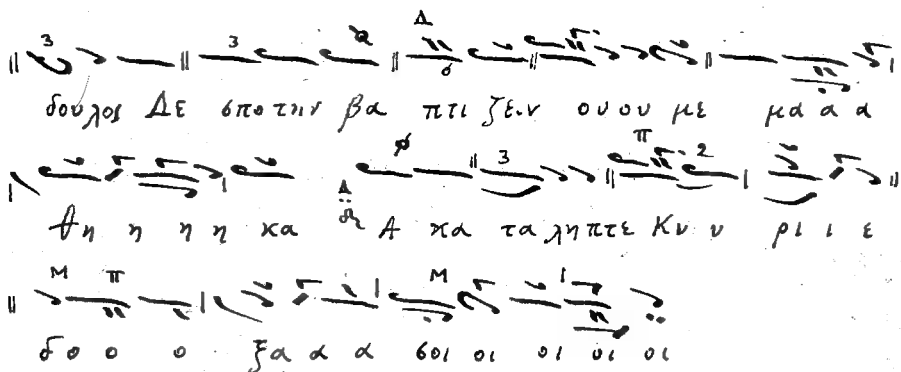 δουλος Δε σπο την βα πτι ζειν ου ου με μα α α
θη η η η κα Α κα τα ληπτε Κυ υ ρι ι ε
δο ο ο ξα α α σοι οι οι οι οι